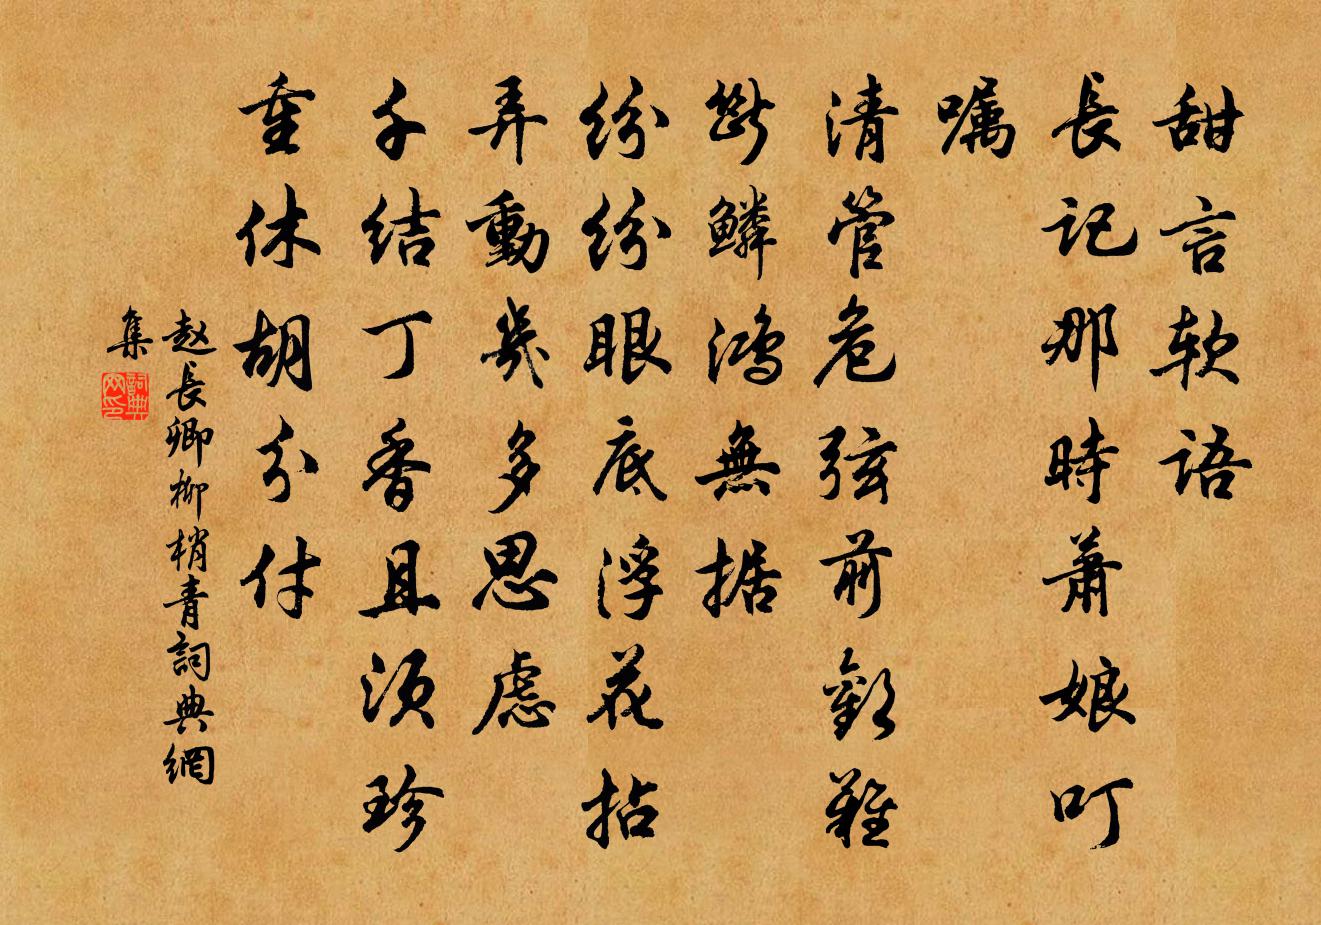 甜言软语
長记那時萧娘叮
嘱
清管危弦前歡難
断鳞鸿無据
纷纷眼底浮花拈
弄動幾多思虑
千结丁香且须珍
重休胡分付
赵長卿柳梢青詞典網
集
詞典网印